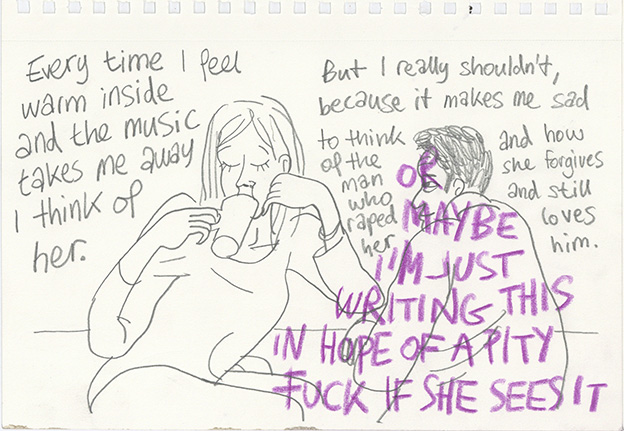 Every time I feel
warm inside
and the music
takes me away
I think of
her.
But I really shouldn't,
because it makes me sad
to think
of the
man
who
raped
her
and how
she forgives
and still
loves
him.
OR
MAYBE
I'M JUST
WRITING THIS
IN HOPE OF A PITY
FUCK IF SHE SEES IT